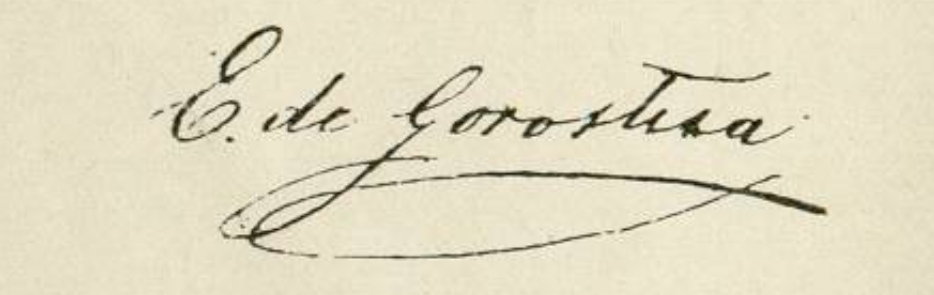 E. de Gorostiza